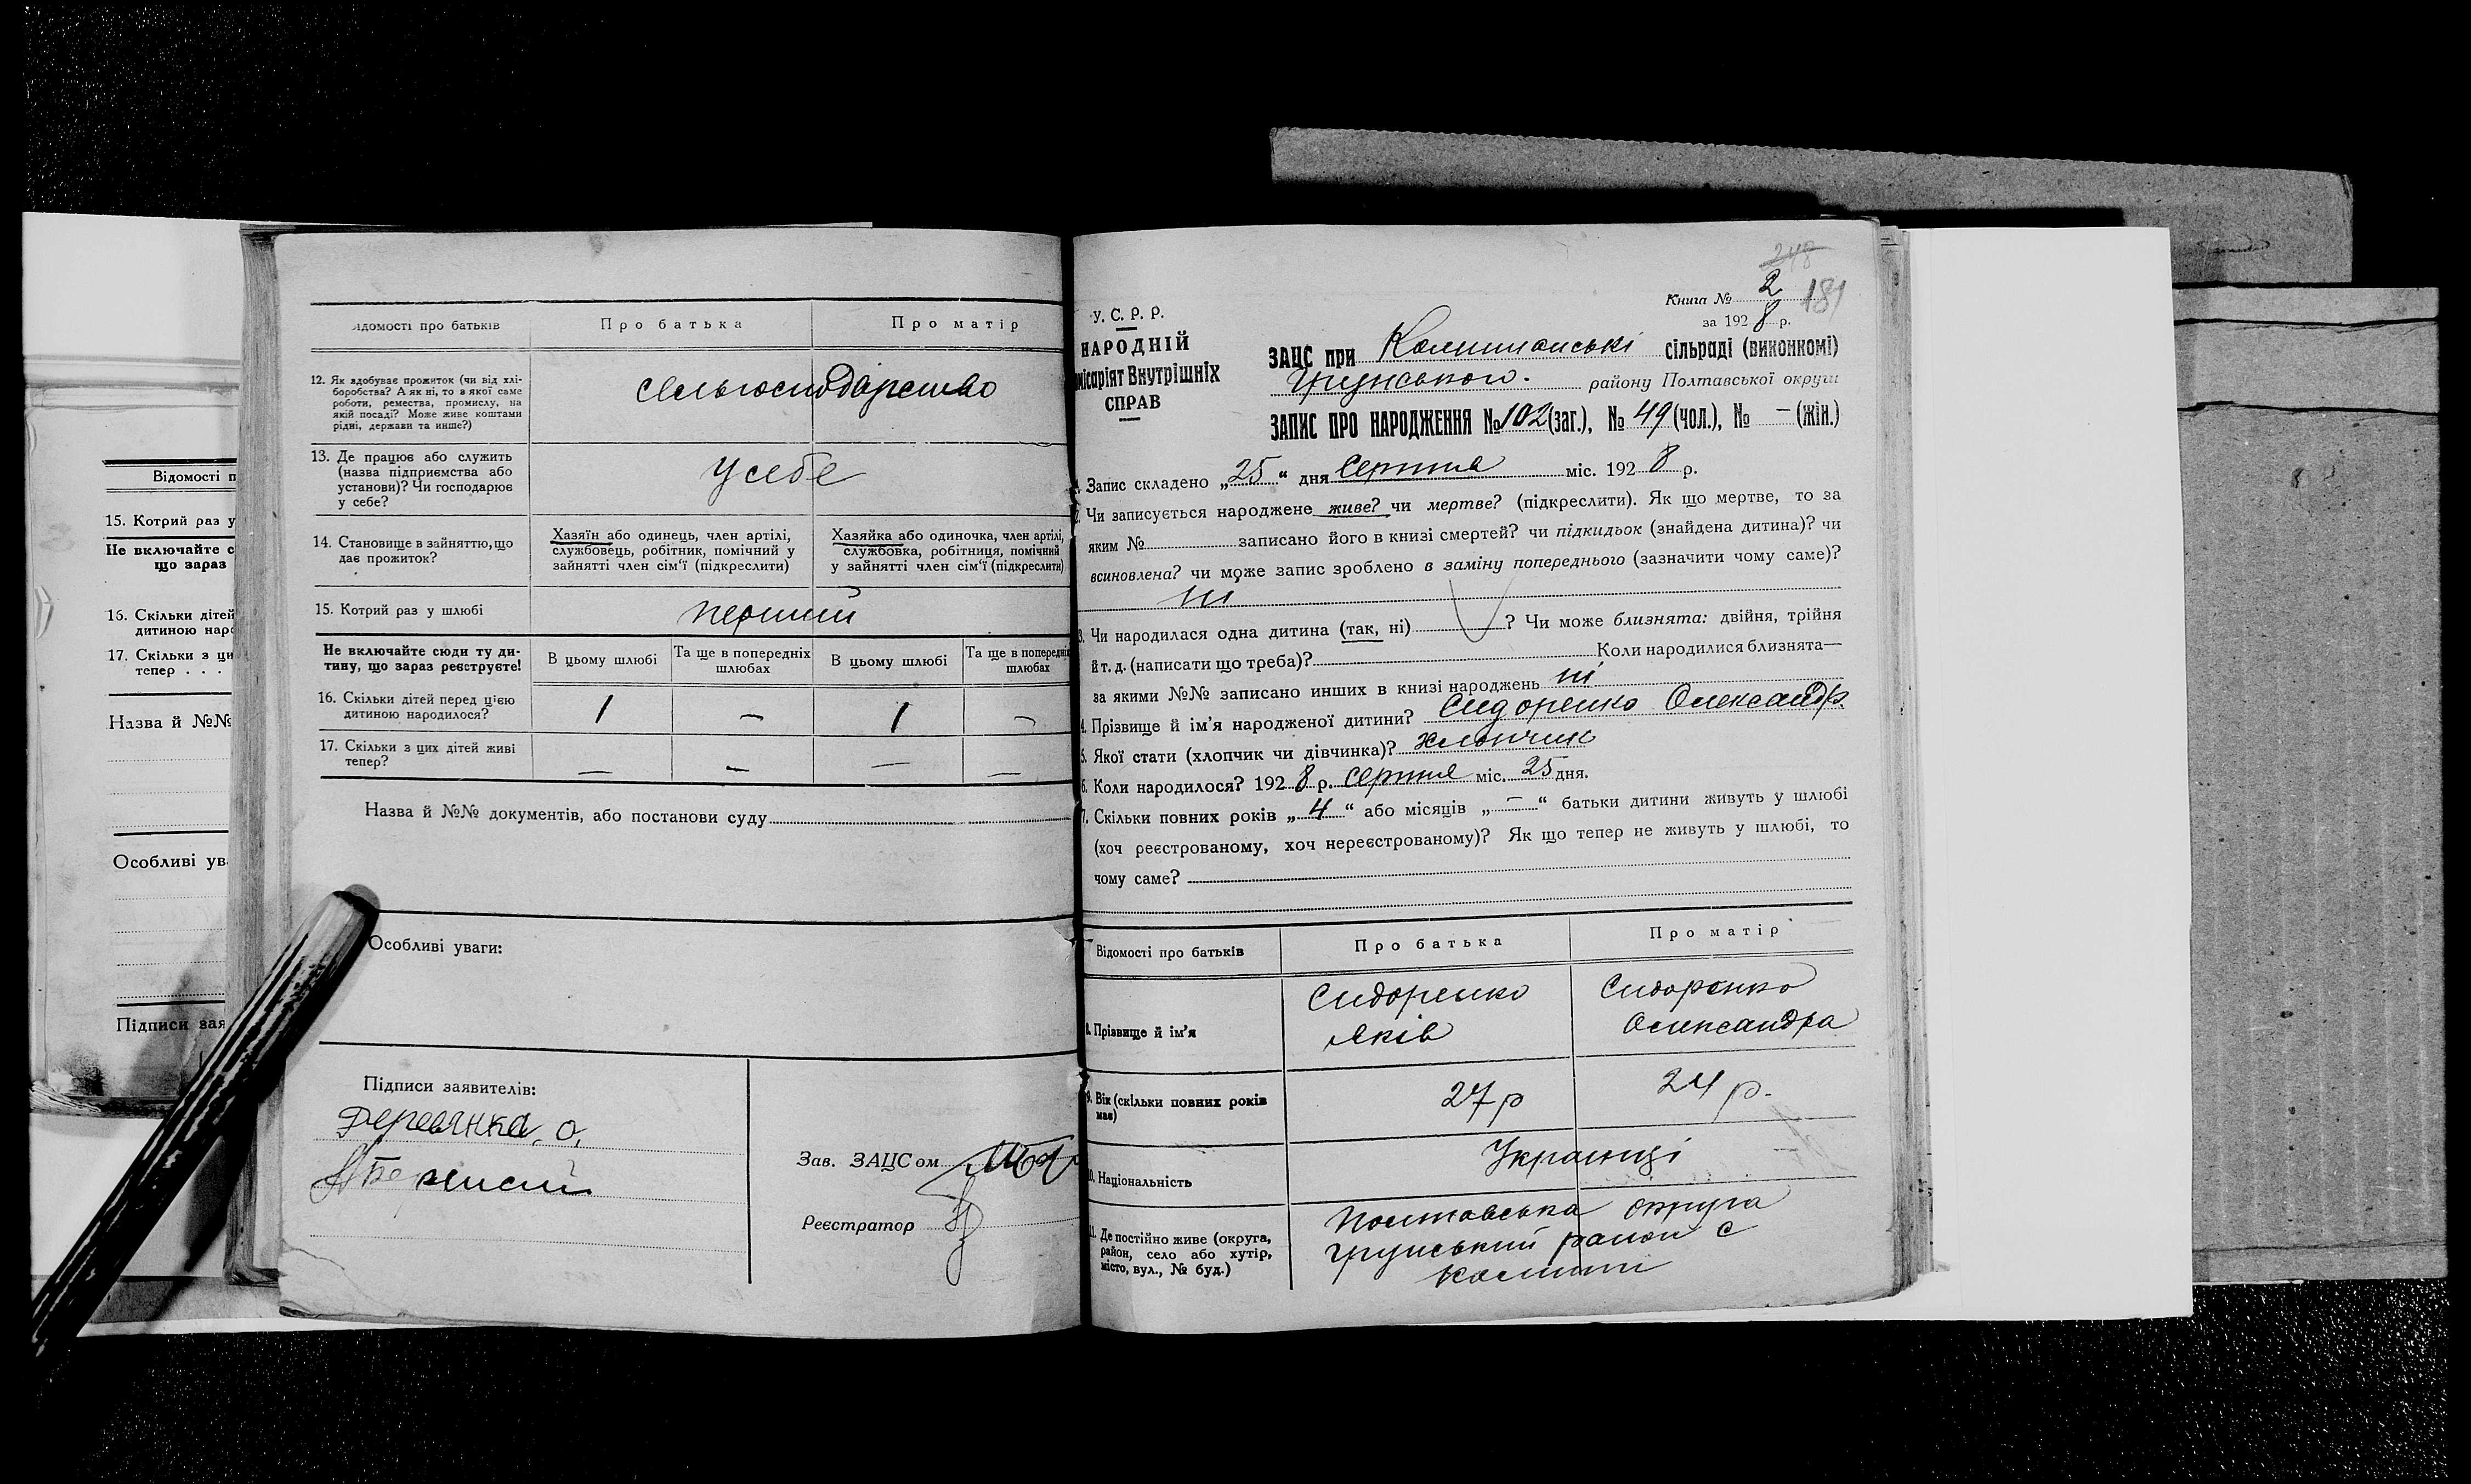 Відомості п
15. Котрий раз у
Не включайте с
що зараз
16. Скільки дітей
дитиною наро
17. Скільки з ци
тепер . . .
Назва й №№
Особливі ув
Підписи зая
ідомості про батьків
Про батька
Про матір
12. Як здобуває прожиток (чи від хлі-
боробства? А як ні, то з якої саме
роботи, ремества, промислу, на
якій посаді? Може живе коштами
рідні, держави та инше?)
сельгосподарство
13. Де працює або служить
(назва підприємства або
установи)? Чи господарює
у себе?
у себе
14. Становище в зайняттю, що
дає прожиток?
Хазяїн або одинець, член артілі,
службовець, робітник, помічний у
зайнятті член сім'ї (підкреслити)
Хазяйка або одиночка, член артілі,
службовка, робітниця, помічний
у зайнятті член сім'ї (підкреслити)
15. Котрий раз у шлюбі
перший
Не включайте сюди ту ди-
тину, що зараз реєструєте!
В цьому шлюбі
Та ще в попередніх
шлюбах
В цьому шлюбі
Та ще в попередніх
шлюбах
16. Скільки дітей перед цією
дитиною народилося?
1 — 1 —
17. Скільки з цих дітей живі
тепер?
— — — —
Назва й №№ документів, або постанови суду
Особливі уваги:
Підписи заявителів:
Деревянка. О.
Зав. ЗАЦСом
Реєстратор
248
Книга № 2 181
за 1928 р.
У. С. Р. Р.
НАРОДНІЙ
місаріят Внутрішніх
СПРАВ
ЗАЦС при Колишанські сільраді (виконкомі)
Грунського. району Полтавської округи
ЗАПИС ПРО НАРОДЖЕННЯ № 102 (заг.), № 49 (чол.), № — (жін.)
1. Запис складено „25“ дня Серпня міс. 1928 р.
2. Чи записується народжене живе? чи мертве? (підкреслити). Як що мертве, то за
яким № записано його в книзі смертей? чи підкидьок (знайдена дитина)? чи
всиновлена? чи може запис зроблено в заміну попереднього (зазначити чому саме)?
ні
3. Чи народилася одна дитина (так, ні) ? Чи може близнята: двійня, трійня
й т. д. (написати що треба)? Коли народилися близнята—
за якими №№ записано инших в книзі народжень ні
4. Прізвище й ім'я народженої дитини? Сидоренко Олександр
5. Якої стати (хлопчик чи дівчинка)? хлопчик
6. Коли народилося? 1928 р. серпня міс. 25 дня.
7. Скільки повних років „4“ або місяців „—“ батьки дитини живуть у шлюбі
(хоч реєстрованому, хоч нереєстрованому)? Як що тепер не живуть у шлюбі, то
чому саме?
Відомості про батьків
Про батька
Про матір
8. Прізвище й ім'я
Сидоренко
Яків
Сидоренко
Олександра
9. Вік (скільки повних років
має)
27 р
24 р.
10. Національність
Українці
11. Де постійно живе (округа,
район, село або хутір,
місто, вул., № буд.)
Полтавська округа
грунський район с